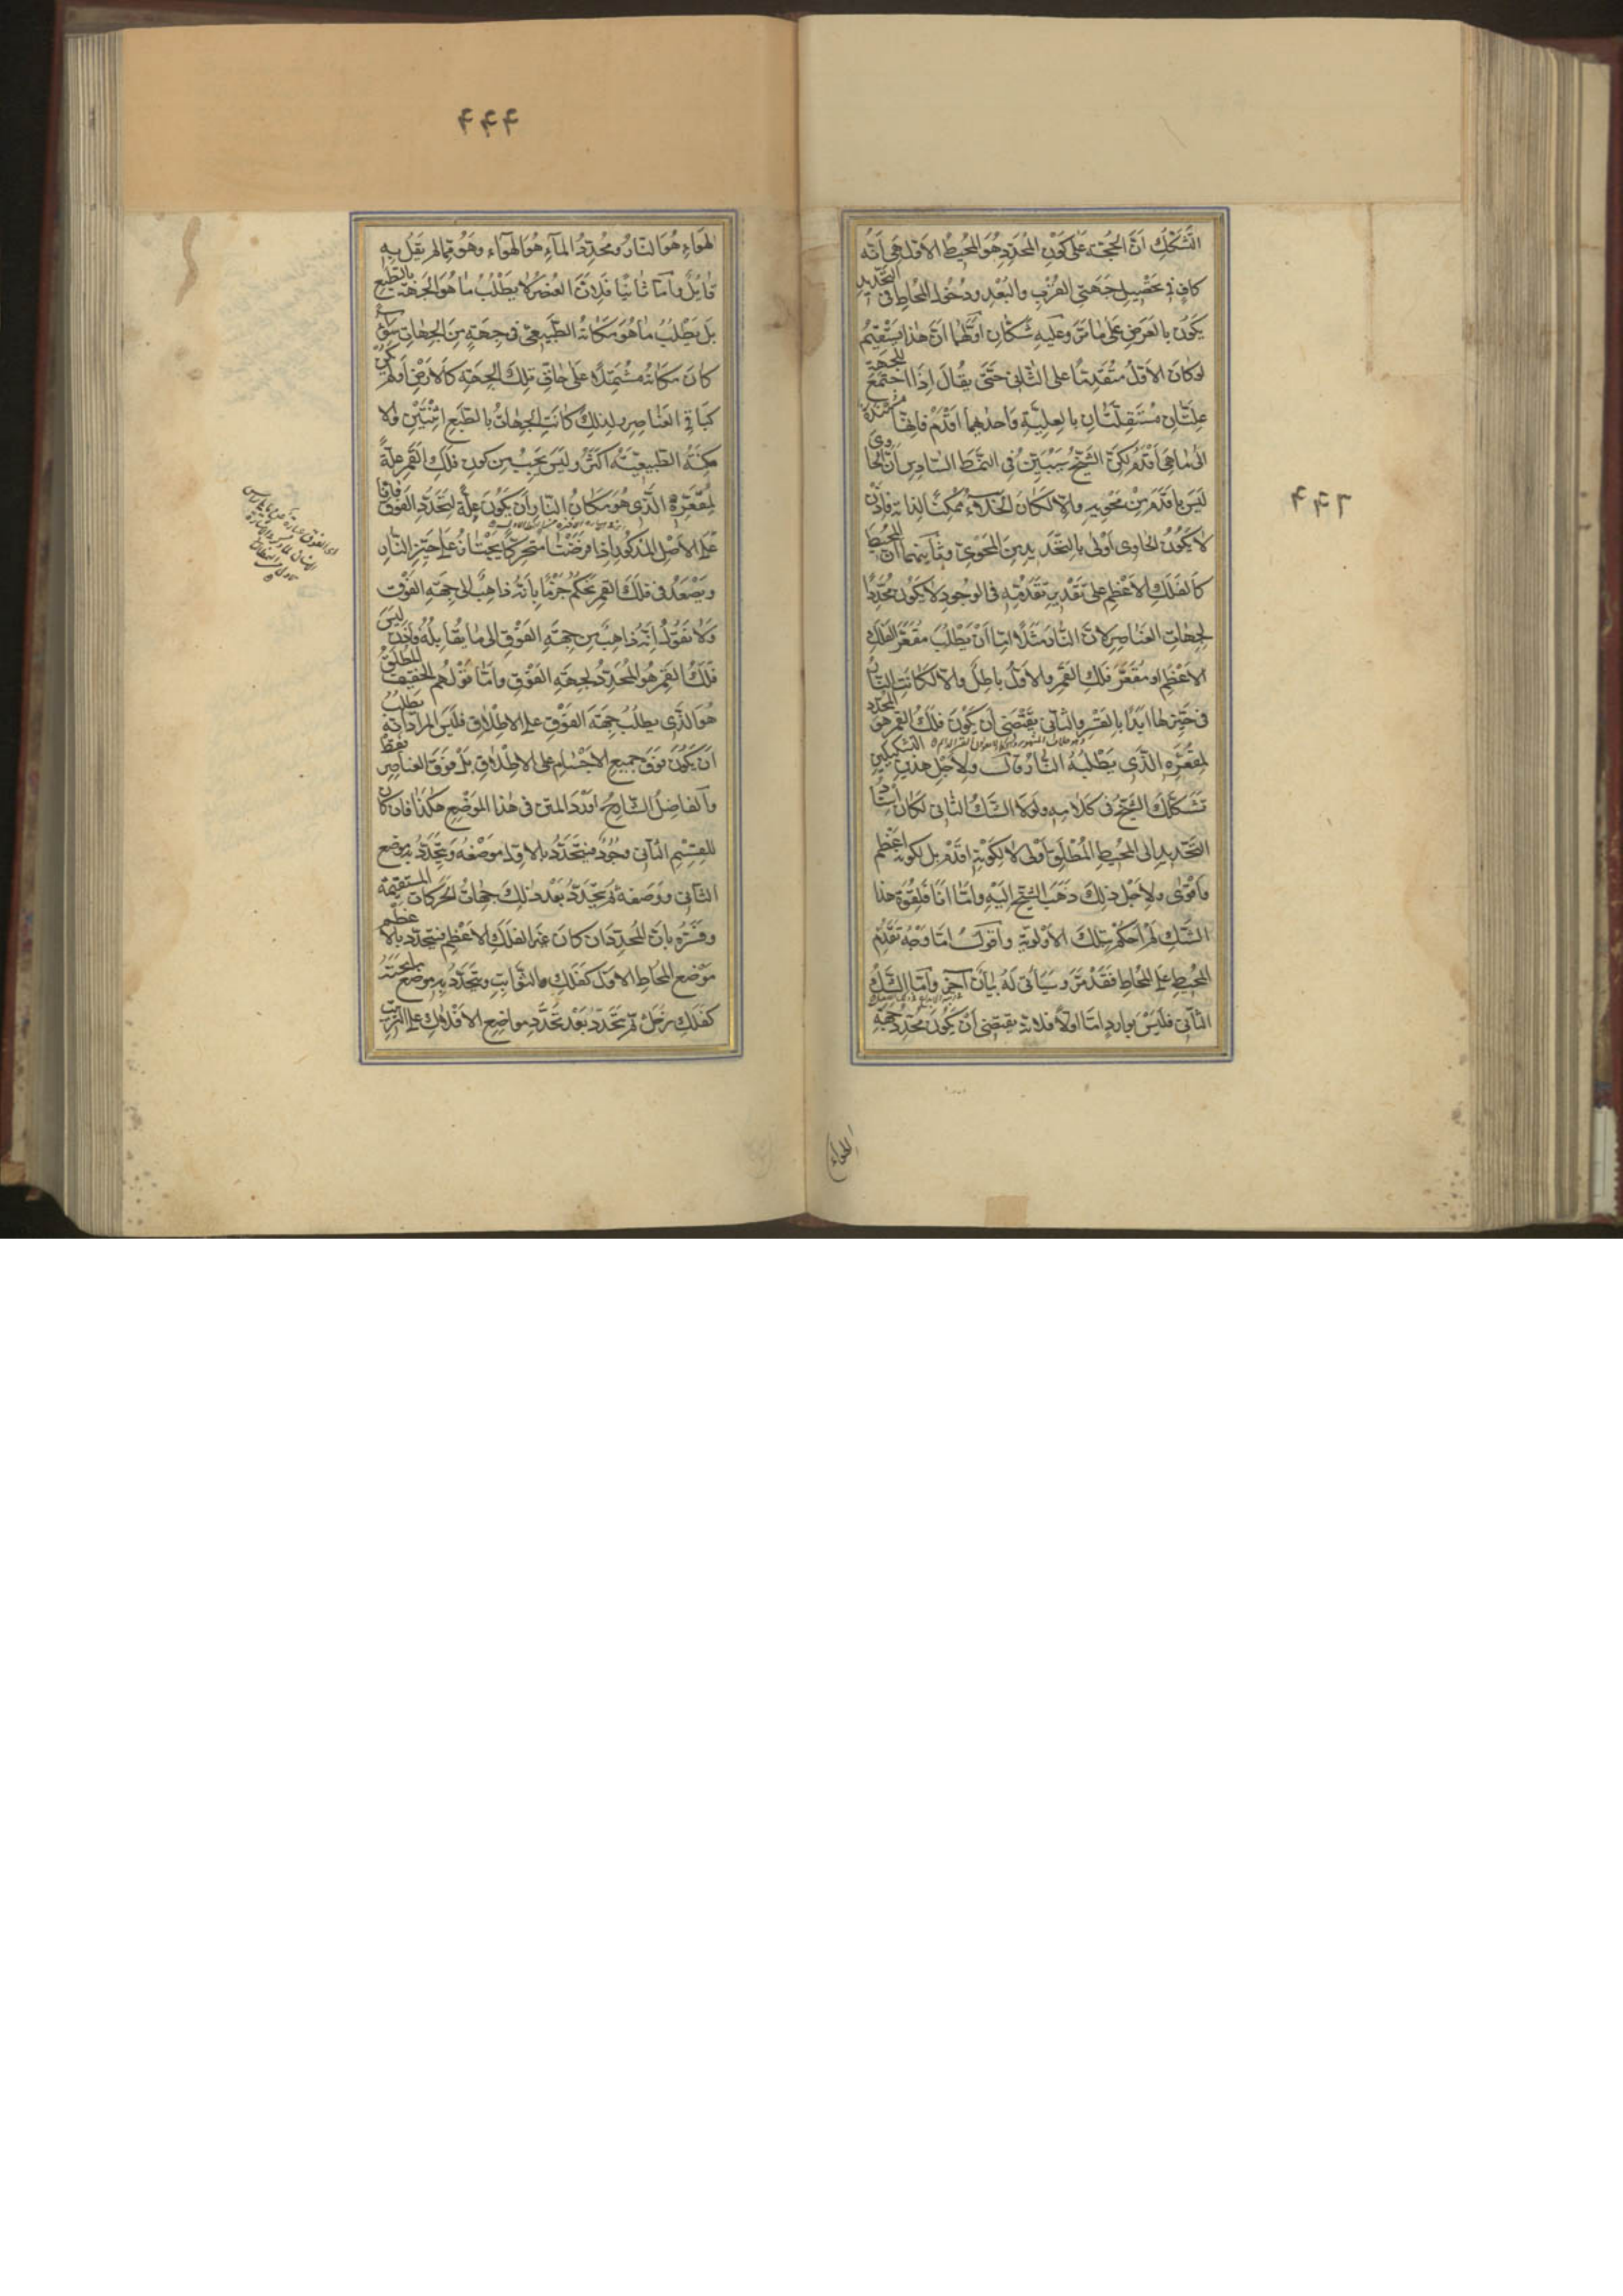 التشكك ان الحجة على كون المحدد هو المحيط الاول هى انه
كاف فى تحصيل جهتى القرب والبعد ودخول المحاط فى التحديد
يكون بالعرض على ما مر وعليه شكان اولهما ان هذا يستقيم
لو كان الاول متقدما على الثانى حتى يقال اذا اجتمع للجهة
علتان مستقلتان بالعلية واحدهما اقدم فانها مستندة
الى ما هى اقدم لكن الشيخ سيبين فى النمط السادس ان الحاوى
ليس باقدم من محويه والا لكان الخلاء ممكنا لذاته فاذن
لا يكون الحاوى اولى بالتحديد من المحوى وثانيهما ان المحيط
كالفلك الاعظم على تقدير تقدمه فى الوجود لا يكون محددا
لجهات العناصر لان النار مثلا اما ان يطلب مقعر الفلك
الاعظم او مقعر فلك القمر والاول باطل والا لكانت النار
فى حيزها ابدا بالقسر والثانى يقتضى ان يكون فلك القمر هو المحدد
لمقعره الذى يطلبه النار قال ولاجل هذين التشكيكين
تشكك الشيخ فى كلامه ولولا الشك الثانى لكان
التحديد الى المحيط المطلق اولى لا لكونه اقدم بل لكونه اعظم
واقوى ولاجل ذلك ذهب الشيخ اليه واما انا فلقوة هذا
الشك لم احكم بتلك الاولوية واقول اما وجه تقدم
المحيط على المحاط فقد مر وسيأتى له بيان آخر واما الشك
الثانى فليس بوارد اما اولا فلانه يقتضى ان يكون محدد جهة
الهواء
٤٤٣
٤٤٤
الهواء هو النار ومحدد الماء هو الهواء وهو مما لم يقل به
قائل واما ثانيا فلان العنصر لا يطلب ما هو الجهة بالطبع
بل يطلب ما هو مكانه الطبيعى فى جهة من الجهات سواء
كان مكانه مشتملا على حاق تلك الجهة كالارض او لم يكن
كباقى العناصر ولذلك كانت الجهات بالطبع اثنتين والا
مكنة الطبيعية اكثر وليس يجب من كون فلك القمر علة
لمقعره الذى هو مكان النار ان يكون علة لتحدد الفوق فانا
على الاصل المذكور اذا فرضنا متحركا يجتاز على حيز النار
ويصعد فى فلك القمر نحكم جزما بانه ذاهب الى جهة الفوق
ولا نقول انه ذاهب من جهة الفوق الى ما يقابله فاذن ليس
فلك القمر هو المحدد لجهة الفوق واما قولهم الخفيف المطلق
هو الذى يطلب جهة الفوق على الاطلاق فليس المراد انه يطلب
ان يكون فوق جميع الاجسام على الاطلاق بل فوق العناصر فقط
والفاضل الشارح اورد المتن فى هذا الموضع هكذا فان كان
للقسم الثانى وجود فيتحدد بالاول موضعه ويتحدد به موضع
الثانى ووضعه ثم يتحدد بعد ذلك جهات الحركات المستقيمة
وفسره بان المحدد ان كان غير الفلك الاعظم فيتحدد بالاعظم
موضع المحاط الاول كفلك الثوابت ويتحدد به موضع ما تحته
كفلك زحل ثم يتحدد بعد تحدد مواضع الافلاك على الترتيب